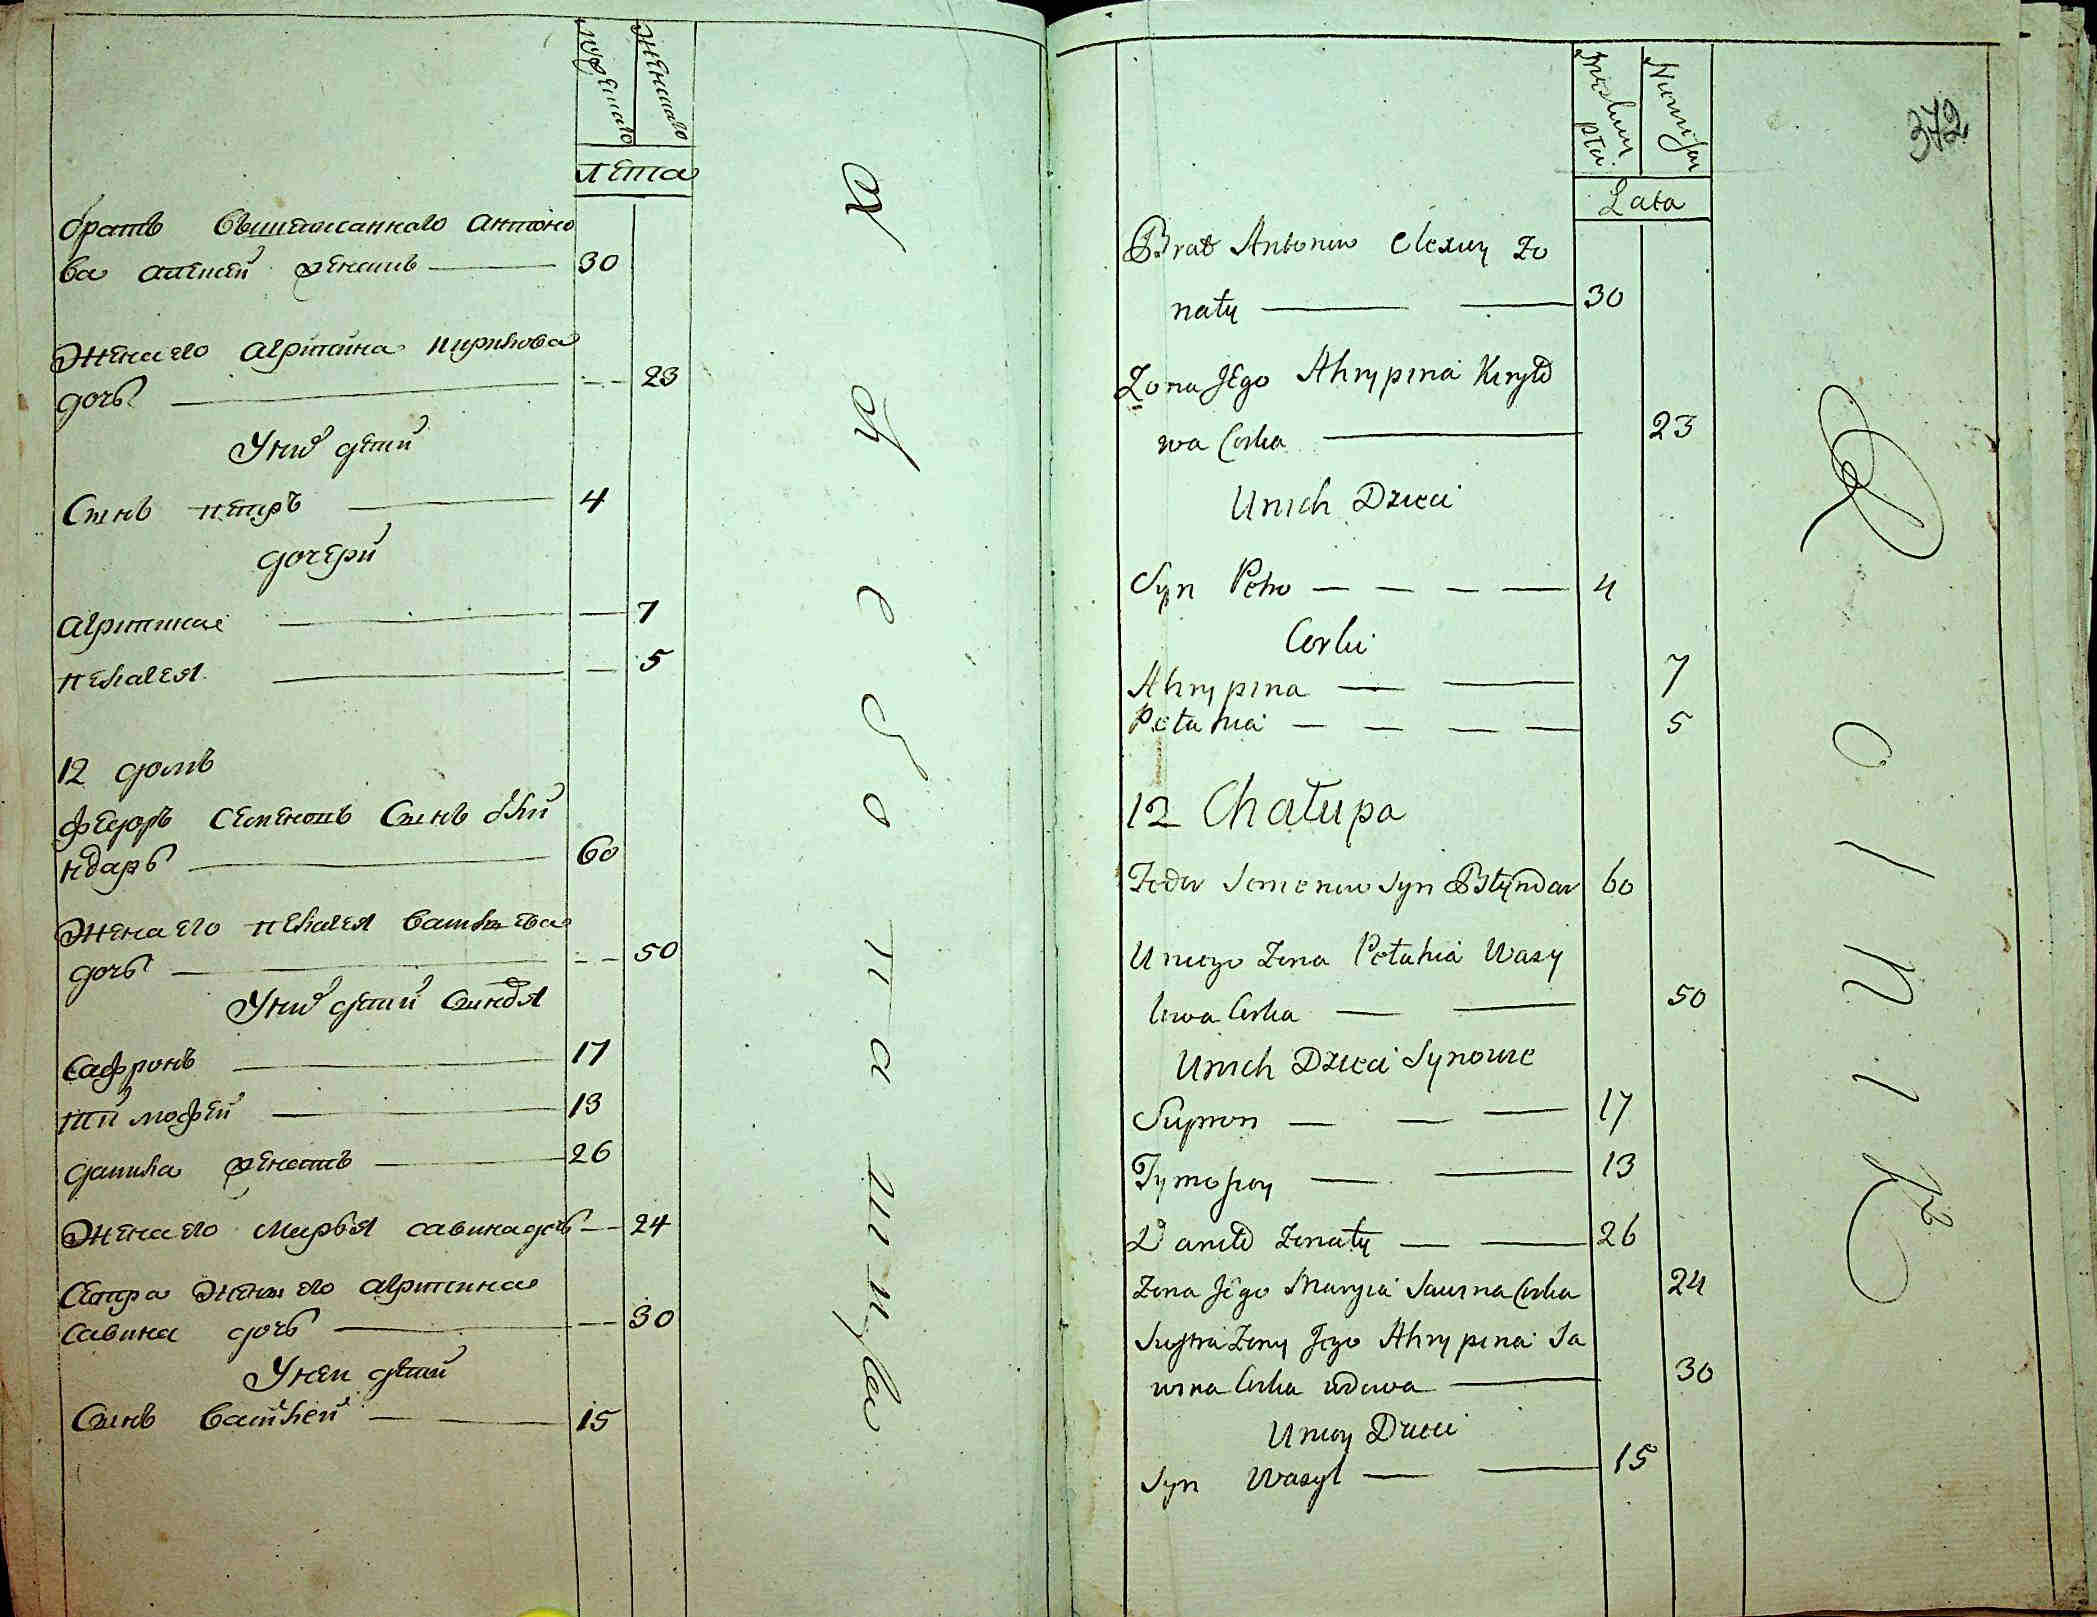 мужескаго
женскаго
лета
братъ вышеписаннаго антоно
ва алексей женатъ 30
Жена его агрипина кирилова
дочь 23
У них детей
Сынъ петръ 4
дочери
агрипина 7
пелагея 5
12 домъ
федоръ семеновъ Сынъ блы
ндарь 60
Жена его пелагея васильева
дочь 50
У них детей Сыновя
Сафронъ 17
тимофей 13
данила женатъ 26
Жена его марья савина дочь 24
Сестра жены его агрипина
савина дочь 30
У неи детей
Сынъ василей 15
372
Lata
Brat Antonow Olexiy żo
naty 30
Żona Jego Ahrypina Kiryło
wa Corka 23
U nich Dzieci
Syn Petro 4
Corki
Ahrypina 7
Pełahia 5
12 Chałupa
Fedor Semenow Syn Błyndar 60
U niego Żona Pełahia Wasy
lowa Corka 50
U nich Dzieci Synowie
Supron 17
Tymofiey 13
Daniło Żonaty 26
Żona Jego Maryia Sawina Corka 24
Siestra Żony Jego Ahrypina Sa
wina Corka wdowa 30
U niey Dzieci
Syn Wasyl 15